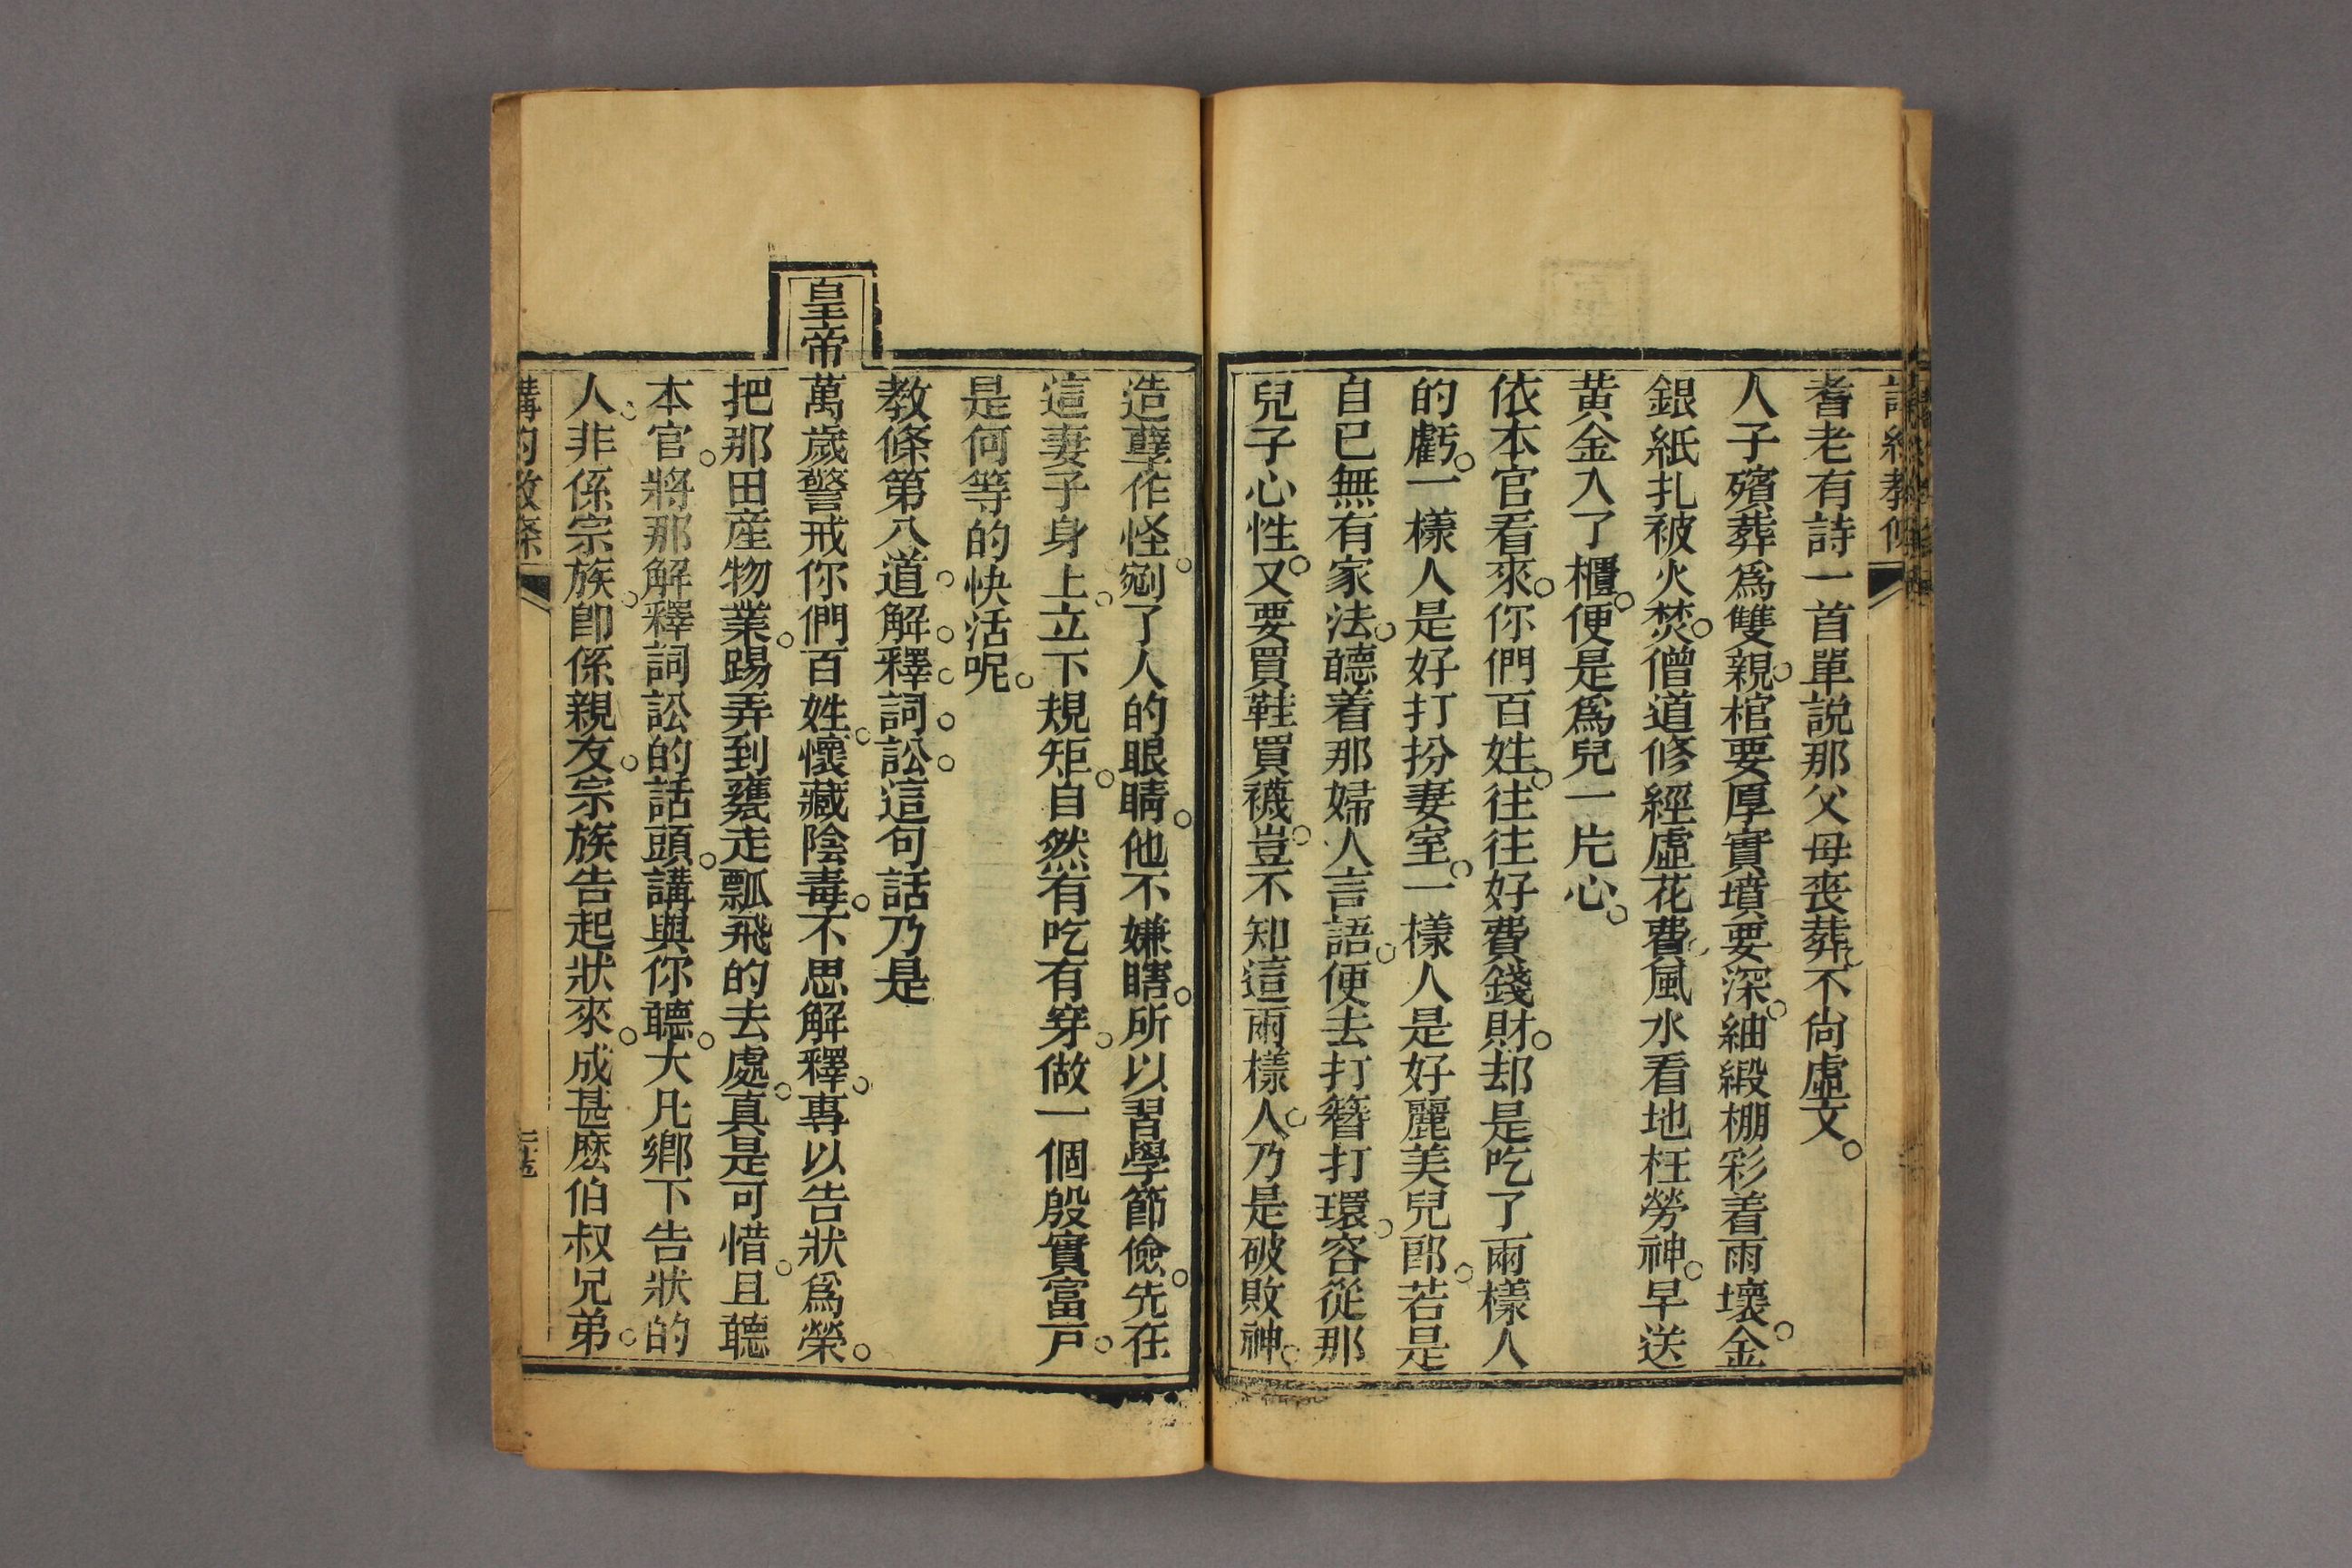 耆老有詩一首單説那父母喪葬不尚虛文。
人子殯葬爲雙親。棺要厚實墳要深。紬緞棚彩着雨壞。金
銀紙扎被火焚。僧道修經虛花費。風水看地枉勞神。早送
黄金入了櫃。便是爲兒一片心。
依本官看來。你們百姓。往往好費錢財。却是吃了兩樣人
的虧。一樣人是好打扮妻室。一樣人是好麗美兒郎。若是
自已無有家法。聽着那婦人言語。便去打簪打環。容從那
兒子心性。又要買鞋買襪。豈不知這兩樣人。乃是破敗神。
造孽作怪。剜了人的眼睛。他不嫌瞎。所以習學節儉。先在
這妻子身上。立下規矩。自然有吃有穿。做一個殷實富戸。
是何等的快活呢。
教條第八道。解。釋。詞。訟。這句話乃是
皇帝萬歲警戒你們百姓。懷藏陰毒。不思解釋。專以告狀爲榮。
把那田産物業。踢弄到甕走瓢飛的去處。真是可惜。且聽
本官。將那解釋詞訟的話頭。講與你聽。大凡鄉下告狀的
人。非係宗族。卽係親友。宗族告起狀來。成甚麽伯叔兄弟。